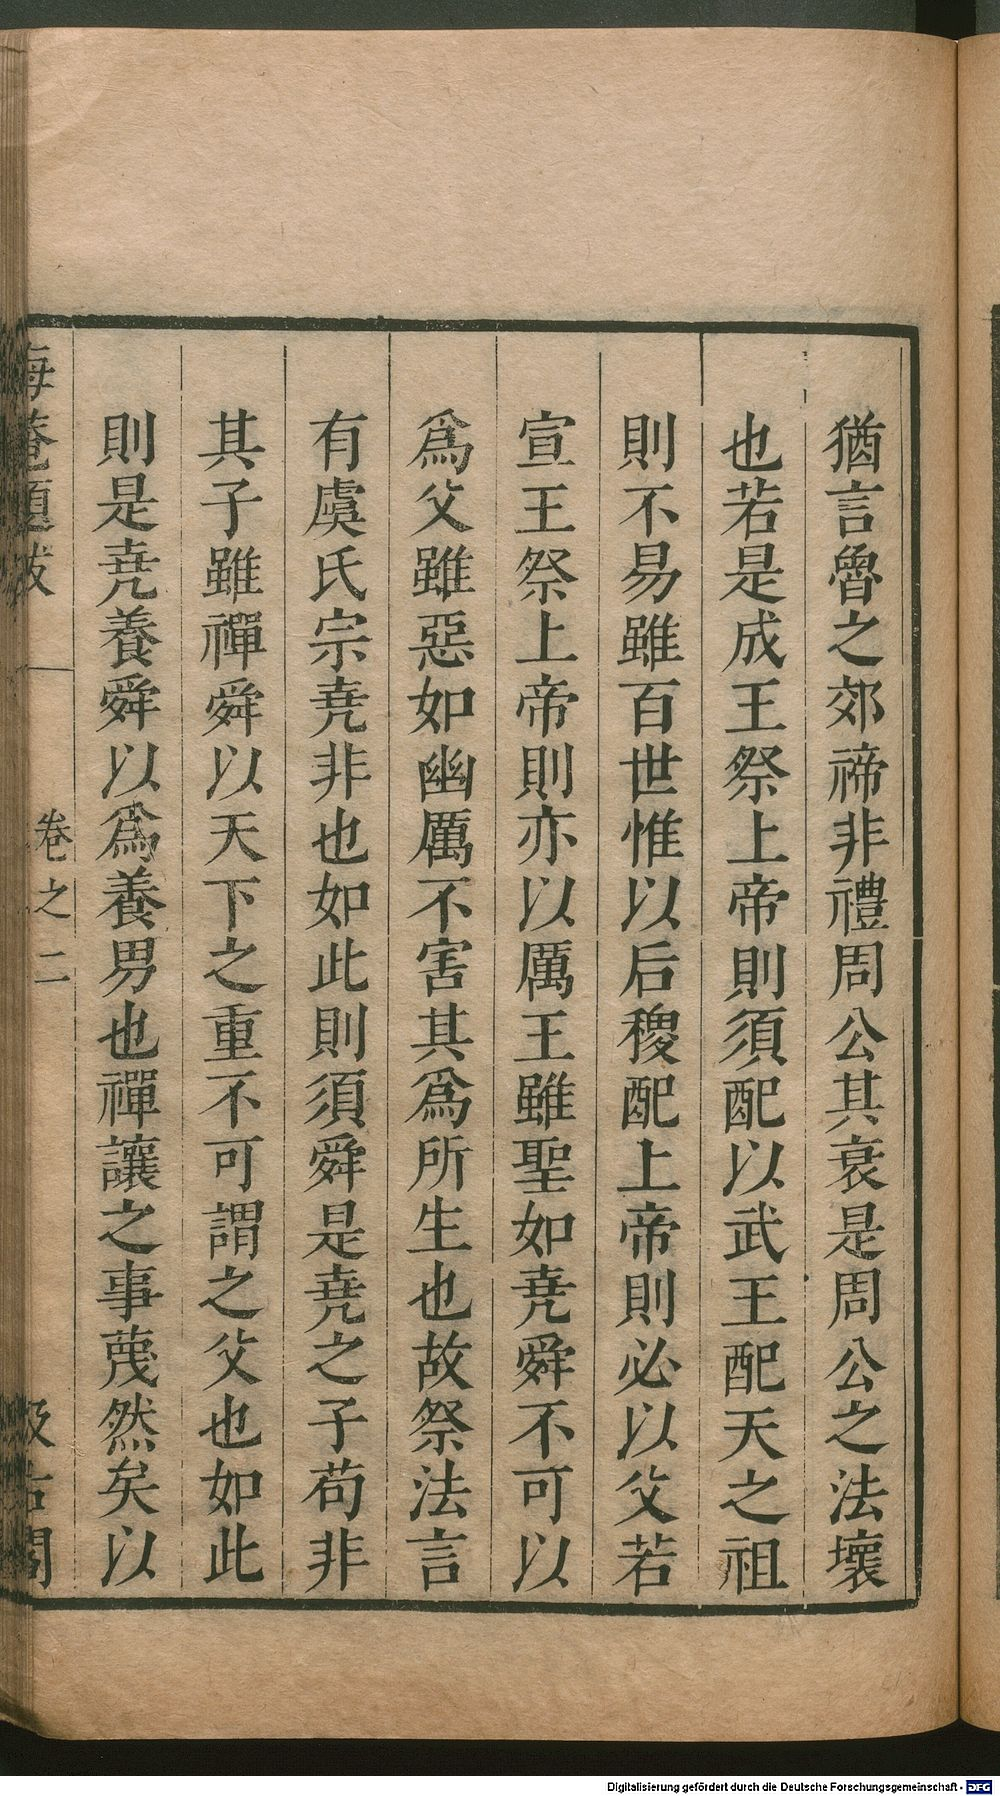 猶言魯之郊禘非禮周公其衰是周公之法壞
也若是成王祭上帝則須配以武王配天之祖
則不易雖百世惟以后稷配上帝則必以父若
宣王祭上帝則亦以厲王雖聖如堯舜不可以
爲父雖惡如幽厲不害其爲所生也故祭法言
有虞氏宗堯非也如此則須舜是堯之子苟非
其子雖禪舜以天下之重不可謂之父也如此
則是堯養舜以爲養男也禪讓之事蔑然矣以
海菴題跋
卷之二
汲古閣
Digitalisierung gefördert durch die Deutsche Forschungsgemeinschaft - DFG